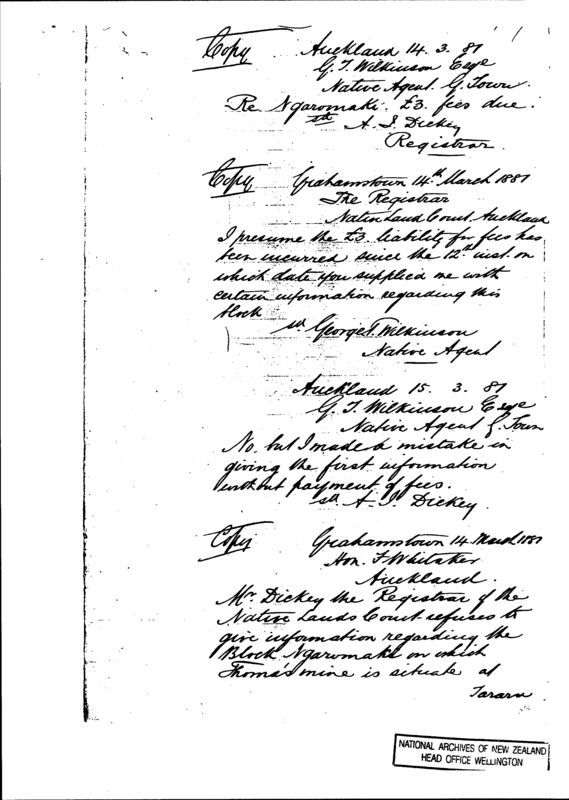 Copy Auckland 14. 3. 81
G. T. Wilkinson Esqe
Native Agent G. Town.
Re Ngaromaki. £3. fees due.
sd A. J. Dickey
Registrar.
Copy Grahamstown 14th March 1881
The Registrar
Native Land Court Auckland
I presume the £3 liability for fees has
been incurred since the 12th inst. on
which date you supplied me with
certain information regarding this
block
sd George T. Wilkinson
Native Agent
Auckland 15. 3. 81
G. T. Wilkinson Esqe
Native Agent G. Town
No, but I made a mistake in
giving the first information
without payment of fees.
sd A. J. Dickey
Copy Grahamstown 14 March 1881
Hon. F Whitaker
Auckland.
Mr. Dickey the Registrar of the
Native Lands Court refuses to
give information regarding the
Block Ngaromaki on which
Thomas' mine is situate at
Tararu
NATIONAL ARCHIVES OF NEW ZEALAND
HEAD OFFICE WELLINGTON